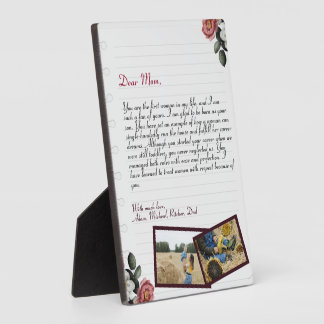 Dear Mom,
You are the first woman in my life, and I am
such a fan of yours. I am glad to be born as your
son. You have set an example of how a woman can
single-handedly run the house and fulfill her career
dreams. Although you started your career when we
were still toddlers, you never neglected us. You
managed both roles with ease and perfection. I
have learned to treat women with respect because of
you.
With much love,
Adam, Michael, Dad